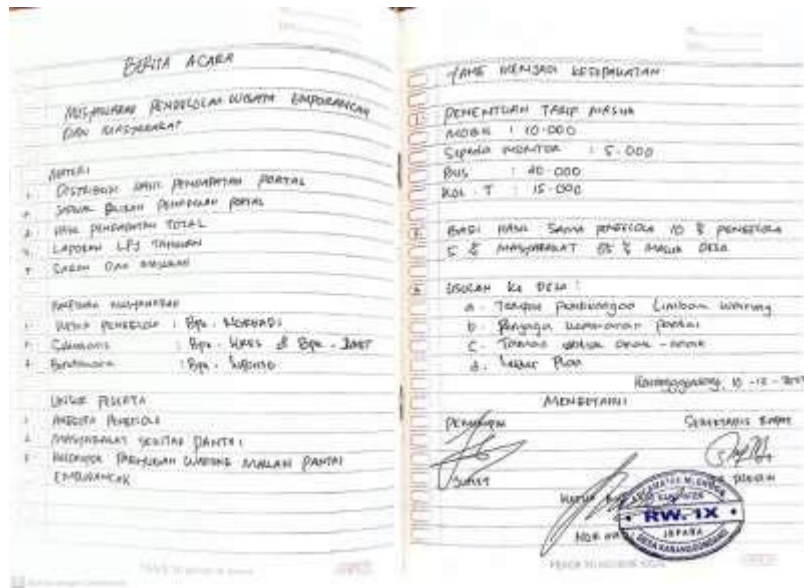 BERITA ACARA
MUSYAWARAH PENGELOLAH WISATA EMPURANCAK
DAN MASYARAKAT
MATERI
DISTRIBUSI HASIL PENDAPATAN PORTAL
PORTAL
HASIL PENDAPATAN TOTAL
LAPORAN LPJ TAHUNAN
SARAN DAN MASUKAN
MUSYAWARAH
KETUA PENGELOLA : Bpk. NORHADI
: Bpk. & Bpk.
Bendahara : Bpk.
UNSUR PESERTA
ANGGOTA PENGELOLA
MASYARAKAT SEKITAR PANTAI
KELOMPOK WARUNG PANTAI
EMPURANCAK
YANG MENJADI KESEPAKATAN
PENENTUAN TARIP MASUK
MOBIL : 10.000
Sepeda MONTOR : 5.000
BUS : 40.000
KOL . T : 15.000
BAGI HASIL SAMA PENGELOLA 10 % PENGELOLA
5 % MASYARAKAT 85 % MASUK DESA
USULAN Ke DESA :
a. Tempat Pembuangan Limbah Warung
b. Penjaga keamanan pantai
c. Taman untuk anak - anak
d.
Karanggondang, 10 - 12 -
MENGETAHUI
PEMIMPIN SEKRETARIS RAPAT
KETUA
RW. IX
JEPARA
DESA KARANGGONDANG